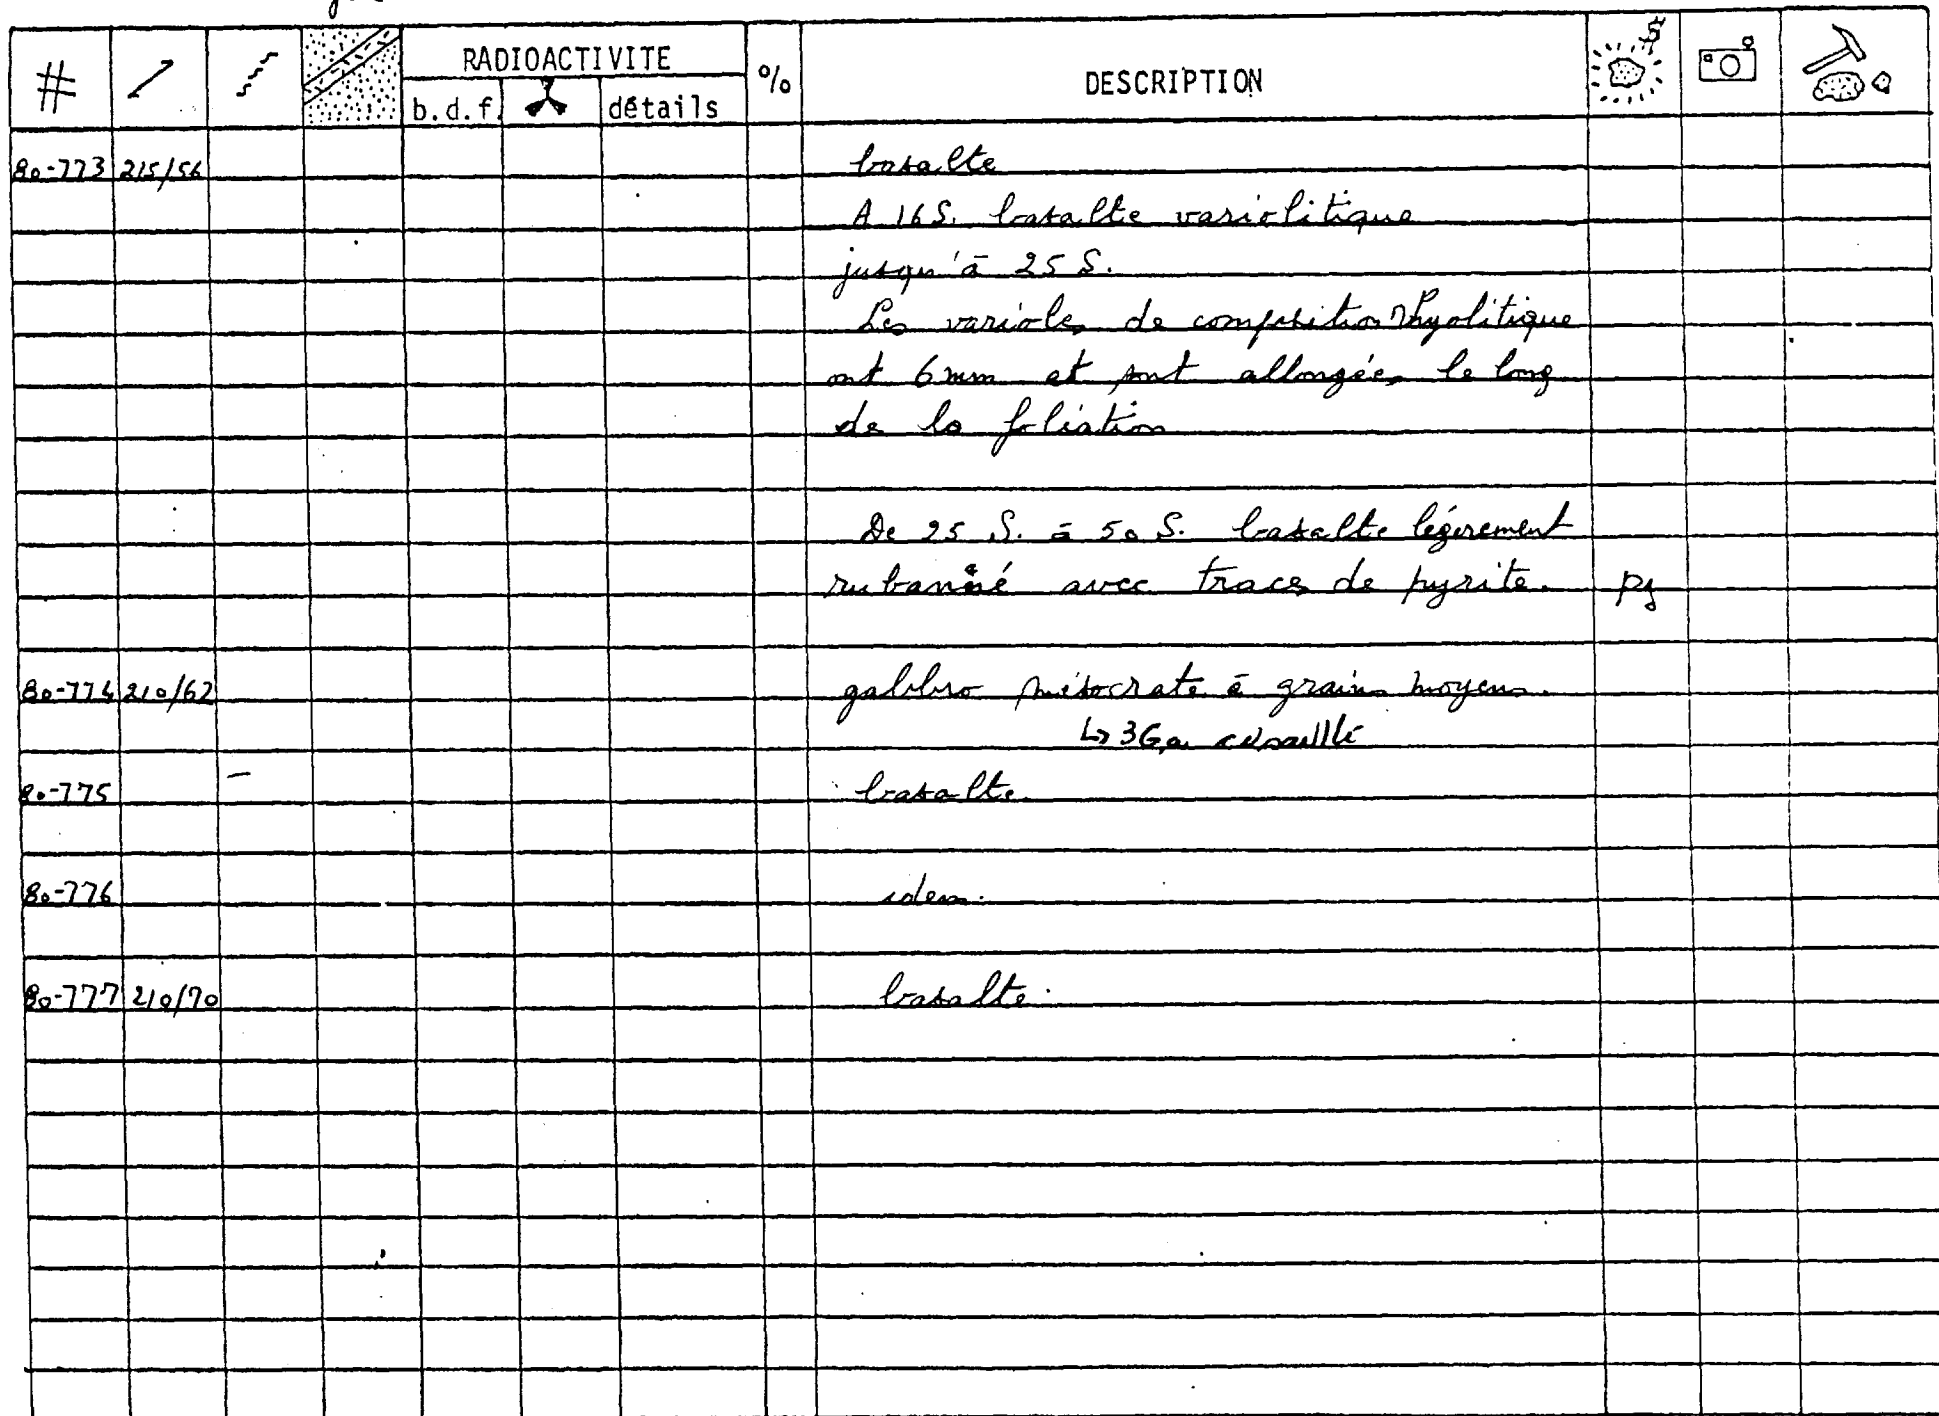 # RADIOACTIVITE % DESCRIPTION
b.d.f. détails
80-773 215/56 basalte
A 16 S. basalte variolitique
jusqu'à 25 S.
Les varioles de composition rhyolitique
ont 6 mm et sont allongées le long
de la foliation
De 25 S. à 50 S. basalte légèrement
rubanné avec traces de pyrite. py
80-774 210/62 gabbro mésocrate à grains moyens.
↳ 3Ga cisaillé
80-775 basalte.
80-776 idem.
80-777 210/70 basalte.